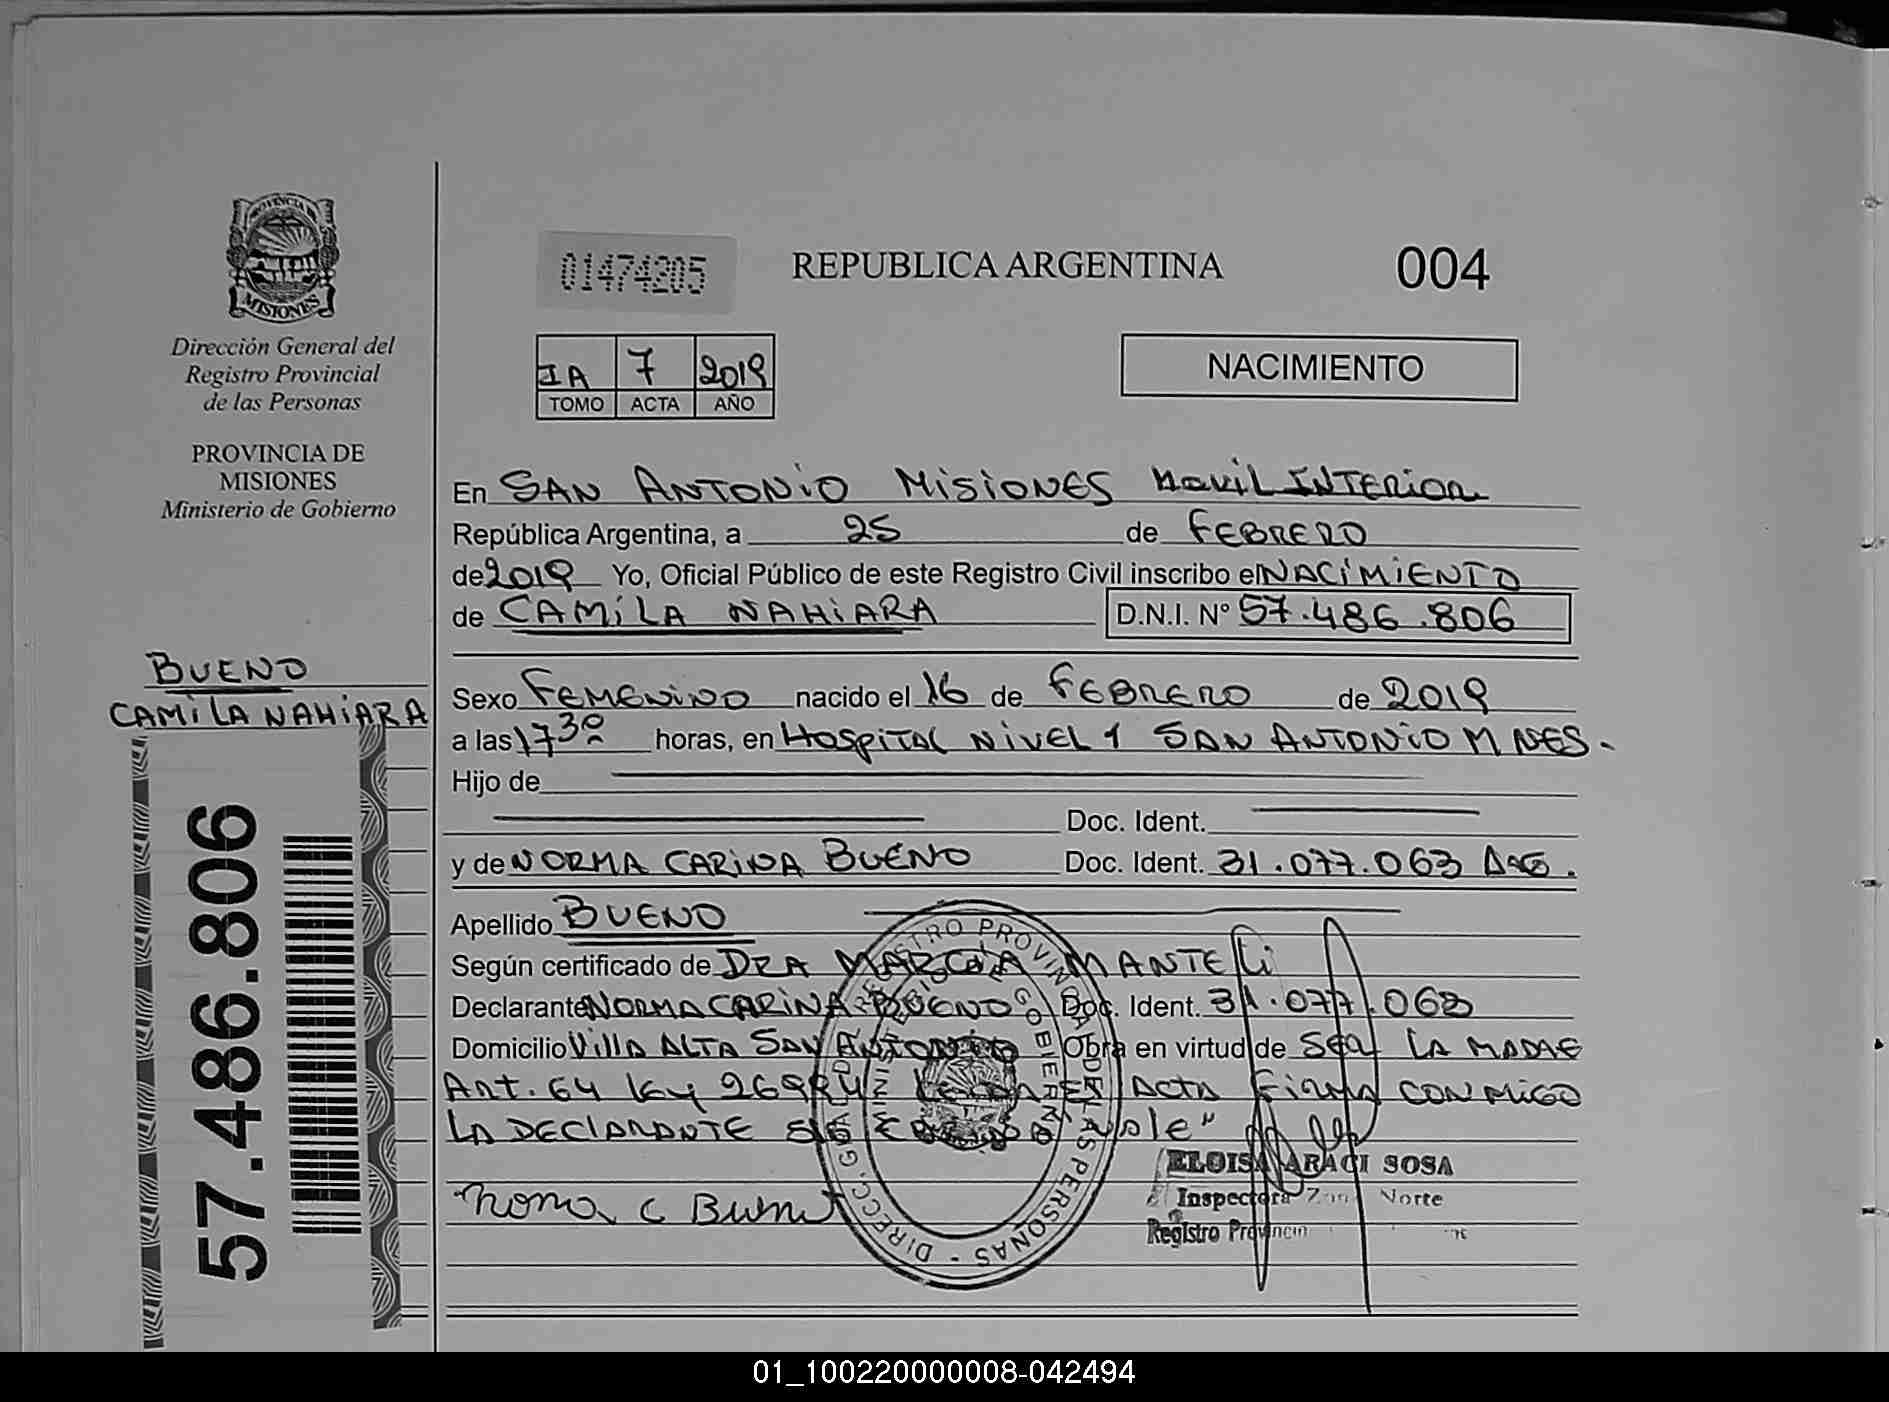 PROVINCIA DE
MISIONES
Dirección General del
Registro Provincial
de las Personas
PROVINCIA DE
MISIONES
Ministerio de Gobierno
BUENO
CAMILA NAHIARA
57.486.806
01474205
REPUBLICA ARGENTINA
004
IA 7 2019
TOMO ACTA AÑO
NACIMIENTO
En SAN ANTONIO MISIONES MOVIL INTERIOR
República Argentina, a 25 de FEBRERO
de 2019 Yo, Oficial Público de este Registro Civil inscribo el NACIMIENTO
de CAMILA NAHIARA D.N.I. Nº 57.486.806
Sexo FEMENINO nacido el 16 de FEBRERO de 2019
a las 17 30 horas, en HOSPITAL NIVEL 1 SAN ANTONIO MNES.
Hijo de
Doc. Ident.
y de NORMA CARINA BUENO Doc. Ident. 31.077.063
Apellido BUENO
Según certificado de DRA MANTELI
Declarante NORMA CARINA BUENO Doc. Ident. 31.077.063
Domicilio VILLA ALTA SAN ANTONIO Obra en virtud de SER LA MADRE
ART. 64 LEY ACTA FIRMA CONMIGO
LA DECLARANTE vale"
Norma C Bueno
DIRECC. GRAL. DEL REGISTRO PROVINCIAL DE LAS PERSONAS -
MINISTERIO DE GOBIERNO
ELOISA ARACI SOSA
Inspectora Zona Norte
Registro Provincial
01_100220000008-042494